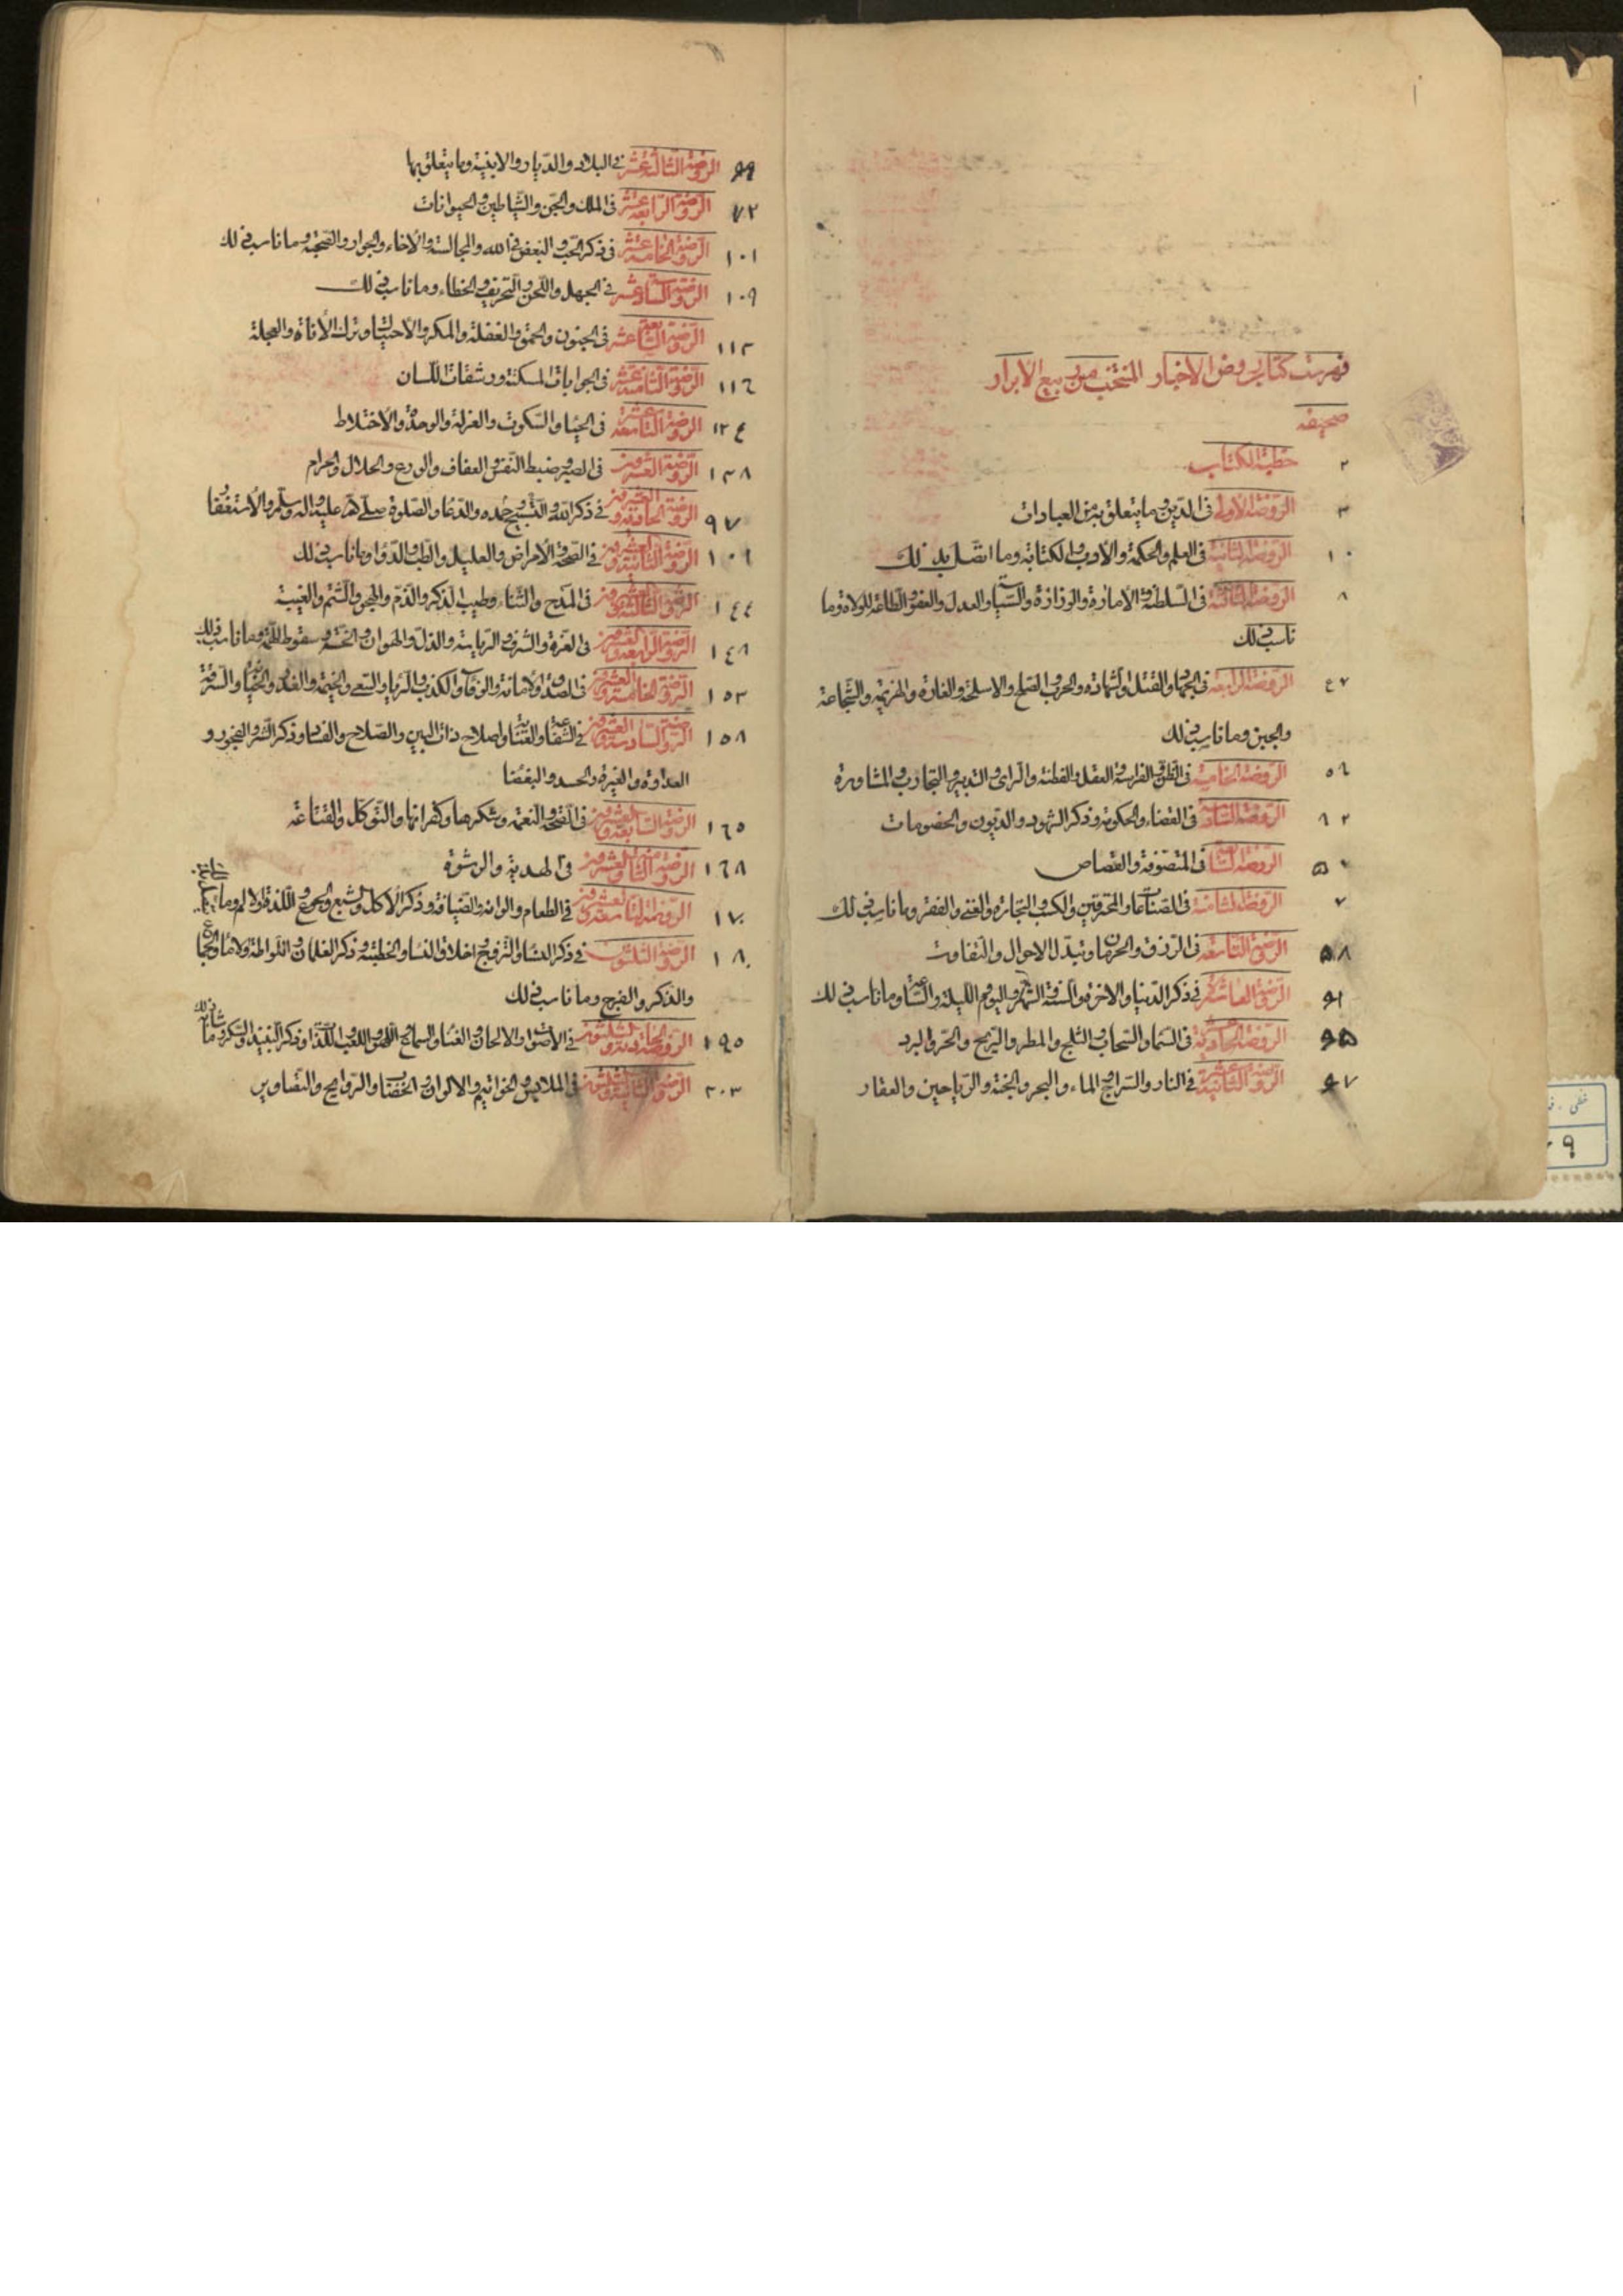 فهرست كتاب روض الأخبار المنتخب من ربيع الأبرار
صحيفه
٢ خطبة الكتاب
٣ الروضة الأولى في الدين وما يتعلق به من العبادات
١٠ الروضة الثانية في العلم والحكمة والأدب والكتابة وما اتصل بذلك
٨ الروضة الثالثة في السلطنة والأمارة والوزارة والسياسة والعدل والعفو والطاعة للولاة وما
ناسب ذلك
٤٧ الروضة الرابعة في الجهاد والقتل والشهادة والحرب والصلح والاسلحة والغارة والهزيمة والشجاعة
والجبن وما ناسب ذلك
٥٦ الروضة الخامسة في الظن والفراسة والعقل والفطنة والرأى والتدبير والتجارب والمشاورة
٦٢ الروضة السادسة في القضاء والحكومة وذكر الشهود والديون والخصومات
الروضة السابعة في المتصوفة والقصاص
٧ الروضة الثامنة في الصناعات والمحترفين والكسب والتجارة والغنى والفقر وما ناسب ذلك
٥٨ الروضة التاسعة في الرزق والحرمان وتبدل الاحوال والتفاوت
الروضة العاشرة في ذكر الدنيا والاخرة والسنة والشهر واليوم والليلة والساعة وما ناسب ذلك
الروضة الحادية عشرة في السماء والسحاب والثلج والمطر والريح والحر والبرد
الروضة الثانية عشرة في النار والسراج والماء والبحر والجنة والرياحين والعقار
الروضة الثالثة عشر في البلاد والديار والابنية وما يتعلق بها
٧٢ الروضة الرابعة عشر في الملك والجن والشياطين والحيوانات
١٠١ الروضة الخامسة عشر في ذكر الحب والبغض في الله والمجالسة والأخاء والجوار والصحبة وما ناسب ذلك
١٠٩ الروضة السادسة عشر في الجهل واللحن والتحريف والخطاء وما ناسب ذلك
١١٣ الروضة السابعة عشر في الجنون والحمق والغفلة والمكر والأحتيال وترك الأناة والعجلة
١١٦ الروضة الثامنة عشر في الجوابات المسكتة ورشقات اللسان
١٢٤ الروضة التاسعة عشر في الحياء والسكوت والعزلة والوحدة والأختلاط
١٣٨ الروضة العشرون في الصبر وضبط النفس والعفاف والورع والحلال والحرام
٩٧ الروضة الحادية والعشرون في ذكر الله والتسبيح بحمده والدعاء والصلوة صلى الله عليه واله وسلم والأستغفار
١٠٦ الروضة الثانية والعشرون في الصحة والأمراض والعليل والطب والدواء وما ناسب ذلك
١٤٤ الروضة الثالثة والعشرون في المدح والثناء وطيب الذكر والذم والهجو والشتم والغيبة
١٤٨ الروضة الرابعة والعشرون في العزة والشرف والرياسة والذل والهوان والخسة وسقوط الهمة وما ناسب ذلك
١٥٣ الروضة الخامسة والعشرون في الصدق والأمانة والوفاء والكذب والرياء والسعى والنميمة والغدر والخيانة والسرقة
١٥٨ الروضة السادسة والعشرون في الشفاعة والعناية واصلاح ذات البين والصلاح والفساد وذكر الشر والفجور و
العداوة والغيرة والحسد والبغضا
١٦٥ الروضة السابعة والعشرون في النعمة وشكرها وكفرانها والتوكل والقناعة
١٦٨ الروضة الثامنة والعشرون في الهدية والرشوة
١٧٠ الروضة التاسعة والعشرون في الطعام والوانه والضيافة وذكر الأكل والشبع والجوع واللذة والالم وما
١٨٠ الروضة الثلثون في ذكر النساء والتزوج واخلاق النساء والخطبة وذكر الغلمان واللواطة
والذكر والفرج وما ناسب ذلك
١٩٥ الروضة الحادية والثلثون في الأصوات والالحان والغناء والسماع واللهو واللعب واللذات وذكر النبيذ والسكر وما شابه ذلك
٢٠٣ الروضة الثانية والثلثون في الملابس والخواتيم والالوان والخضاب والروايح والتصاوير